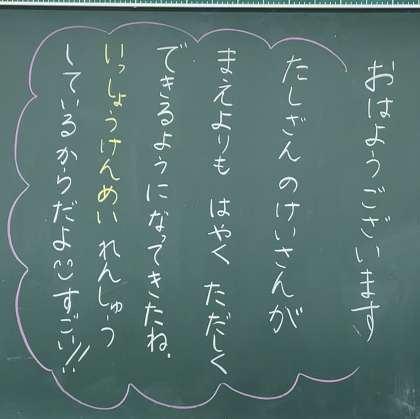 おはようございます
たしざん のけいさんが
まえよりも はやく ただしく
できるようになってきたね。
いっしょうけんめい れんしゅう
しているからだよ^^ すごい!!